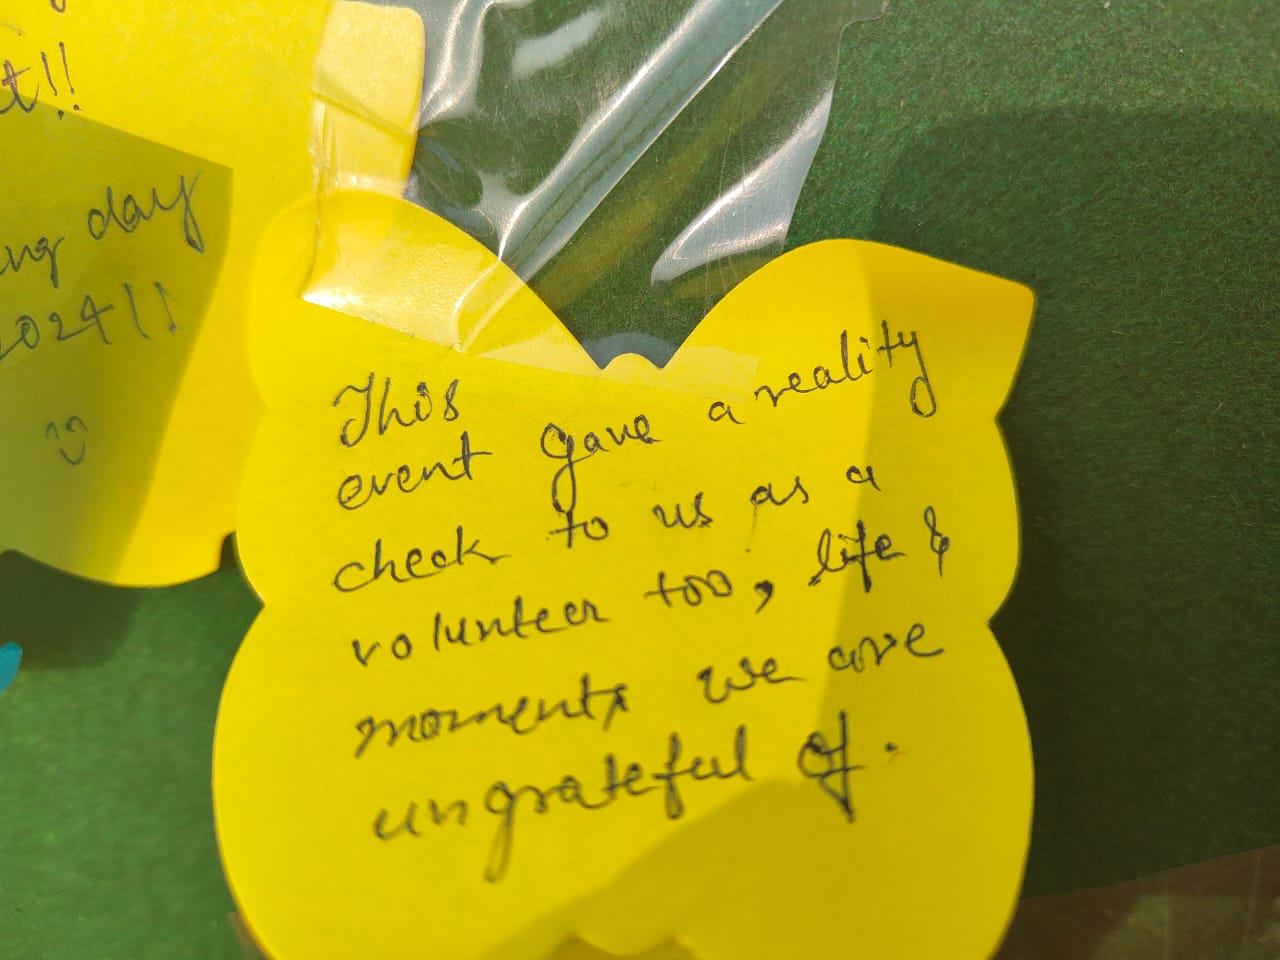 t!!
day
2024!!
This
event gave a reality
check to us as a
volunteer too, life &
moments we are
ungrateful of.